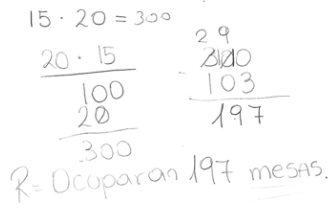 15 · 20 = 300
20 · 15
100
20
300
2 9
300
- 103
197
R= Ocuparan 197 mesas.